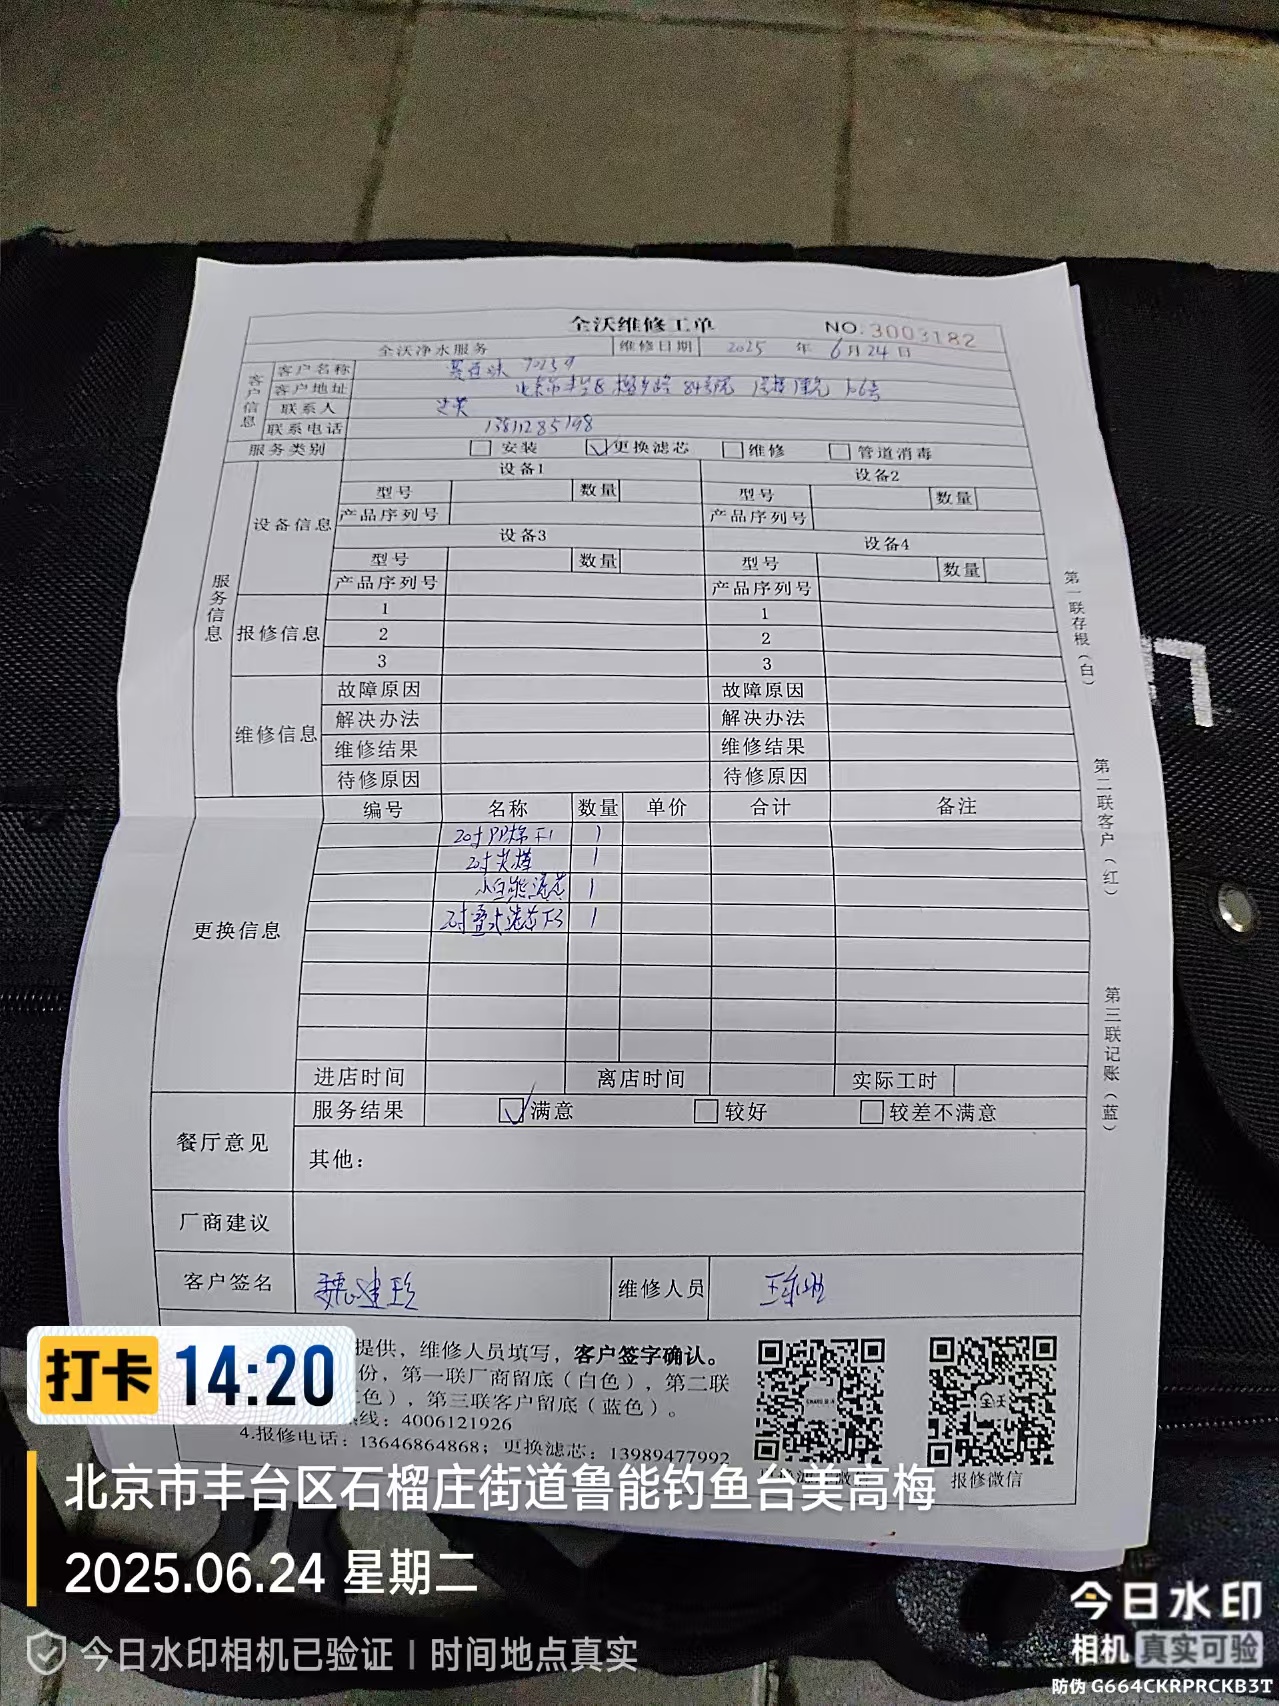 全沃维修工单
NO.3003182
全沃净水服务 维修日期 2025 年 6月24日
客户信息
客户名称
客户地址 84号院
联系人
联系电话
服务类别 安装 更换滤芯 维修 管道消毒
服务信息
设备信息
设备1 设备2
型号 数量 型号 数量
产品序列号 产品序列号
设备3 设备4
型号 数量 型号 数量
产品序列号 产品序列号
报修信息
1 1
2 2
3 3
维修信息
故障原因 故障原因
解决办法 解决办法
维修结果 维修结果
待修原因 待修原因
更换信息
编号 名称 数量 单价 合计 备注
20寸PP棉F1 1
20寸炭棒 1
小白熊滤芯 1
20寸叠式滤芯F3 1
进店时间 离店时间 实际工时
餐厅意见
服务结果 满意 较好 较差不满意
其他：
厂商建议
客户签名 维修人员
第一联存根（白）
第二联客户（红）
第三联记账（蓝）
提供，维修人员填写，客户签字确认。
份，第一联厂商留底（白色），第二联
色），第三联客户留底（蓝色）。
线：4006121926
4.报修电话：13646864868；更换滤芯：13989477992
报修微信
全沃
打卡 14:20
北京市丰台区石榴庄街道鲁能钓鱼台美高梅
2025.06.24 星期二
今日水印相机已验证 | 时间地点真实
今日水印
相机 真实可验
防伪 G664CKRPRCKB3T